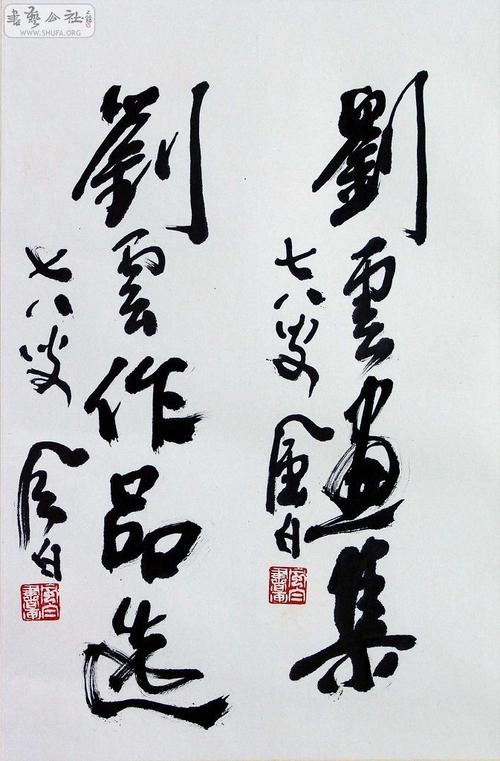 書藝公社
WWW.SHUFA.ORG
劉雲畫集
七八叟 風白
劉雲作品選
七八叟 風白